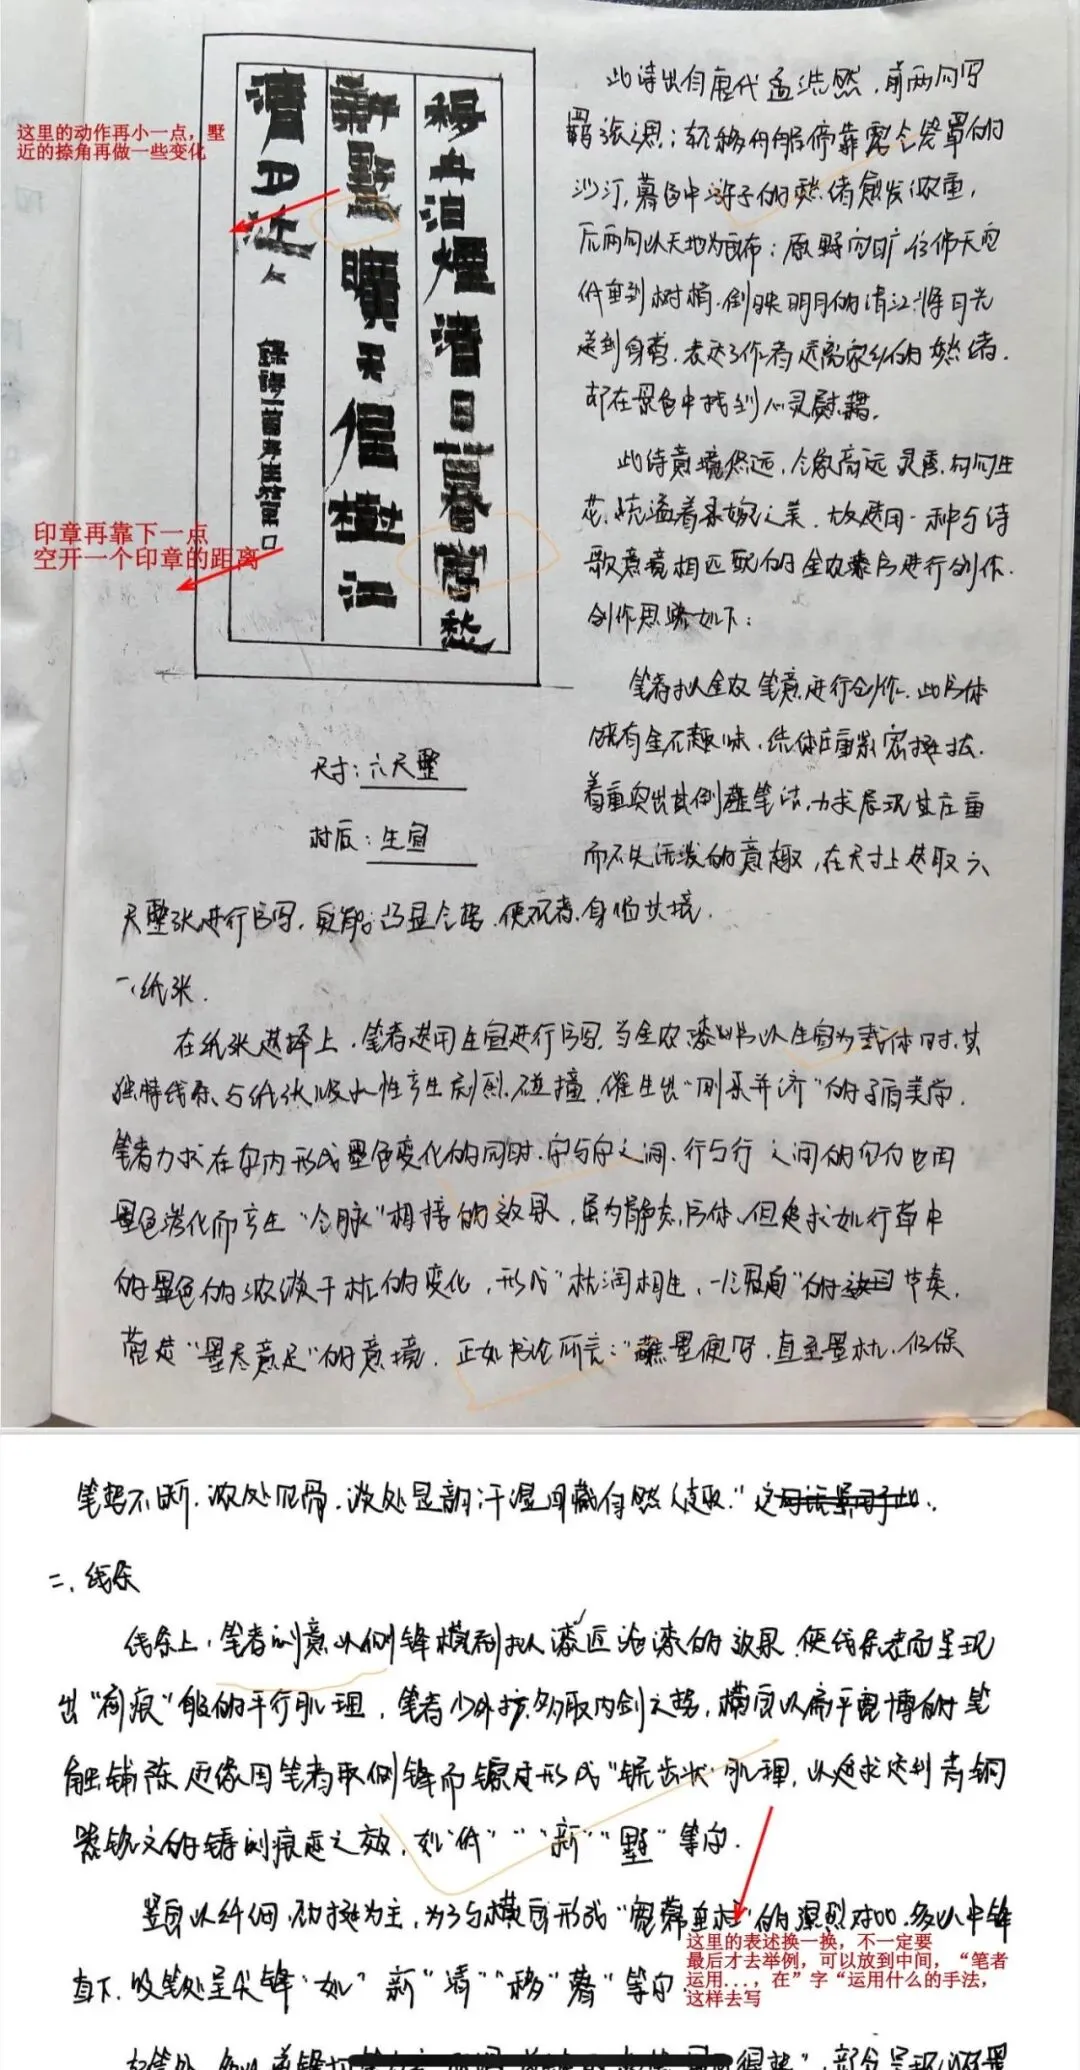 移舟泊煙渚日暮客愁
新野曠天低樹江
清月近人
錄詩一首
这里的动作再小一点，墅
近的捺角再做一些变化
印章再靠下一点
空开一个印章的距离
此诗出自唐代孟浩然，前两句写
羁旅之思：轻移舟船停靠雾气笼罩的
沙汀，暮色中游子的愁绪愈发浓重，
后两句以天地为画布：原野空旷仿佛天空
低垂到树梢，倒映明月的清江将月光
送到身旁，表达了作者远离家乡的愁绪，
却在景色中找到心灵慰藉。
此诗意境悠远，气象高远灵秀，句句生
花，流溢着柔婉之美，故选用一种与诗
歌意境相匹配的金农漆书进行创作，
创作思路如下：
笔者拟金农笔意进行创作，此书体
饶有金石趣味，结体庄重紧密挺拔，
着重突出其倒薤笔法，力求展现其庄重
而不失活泼的意趣，在尺寸上选取六
尺寸：六尺整
材质：生宣
尺整张进行书写，更能凸显气势，使观者身临其境。
一、纸张
在纸张选择上，笔者选用生宣进行书写，当金农漆书以生宣为载体时，其
独特线条与纸张吸水性产生剧烈碰撞，催生出“刚柔并济”的矛盾美学，
笔者力求在字内形成墨色变化的同时，字与字之间、行与行之间的留白也因
墨色变化而产生“气脉”相接的效果，虽为静态书体，但追求如行草中
的墨色的浓淡干枯的变化，形成“枯润相生，一气贯通”的节奏，
营造“墨尽意足”的意境，正如书论所言：“蘸墨便写，直至墨枯，仍保
笔势不断，浓处见骨，淡处显韵，干湿间藏自然之趣。”
二、线条
线条上，笔者刻意以侧锋模拟漆匠治漆的效果，使线条表面呈现
出“刷痕”般的平行肌理，笔者少外拓多取内敛之势，横画以扁平宽博的笔
触铺陈，边缘因笔者取侧锋而镶皮形成“锯齿状”肌理，以追求达到青铜
器铭文的铸刻痕迹之效，如“低”“新”“墅”等字。
竖画以纤细、劲挺为主，为了与横画形成“宽幕垂柱”的强烈对比，多以中锋
直下，收笔处呈尖锋，如“新”“清”“移”“暮”等字。
这里的表述换一换，不一定要
最后才去举例，可以放到中间，“笔者
运用...，在”字“运用什么的手法，
这样去写